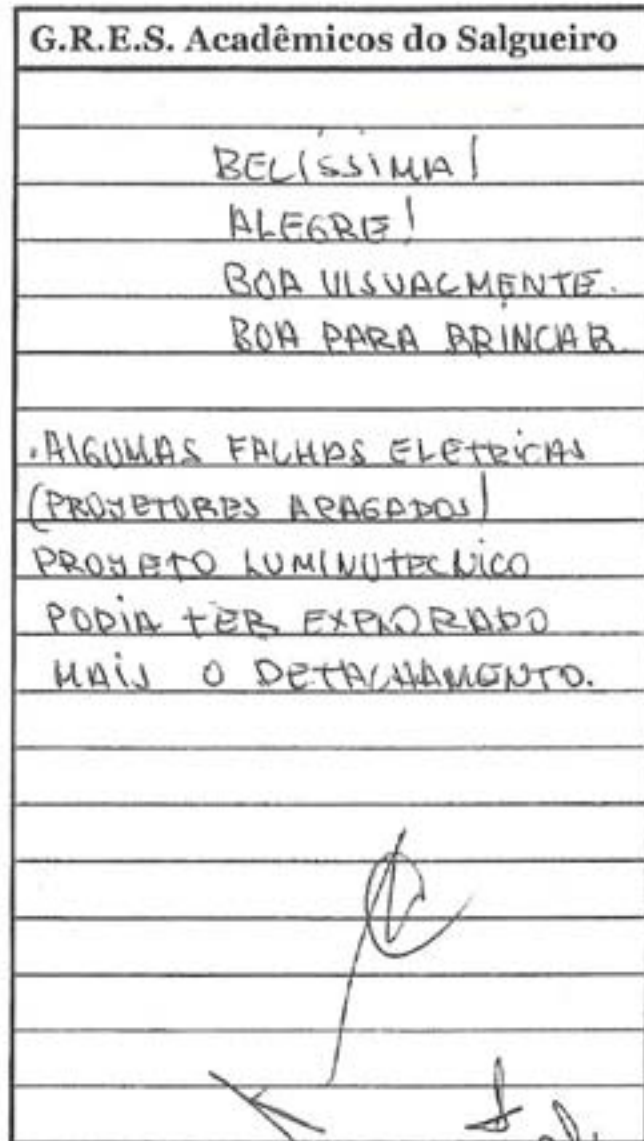 G.R.E.S. Acadêmicos do Salgueiro
BELÍSSIMA!
ALEGRE!
BOA VISUALMENTE.
BOA PARA BRINCAR.
.ALGUMAS FALHAS ELETRICAS
(PROJETORES APAGADOS)
PROJETO LUMINUTECNICO
PODIA TER EXPLORADO
MAIS O DETALHAMENTO.